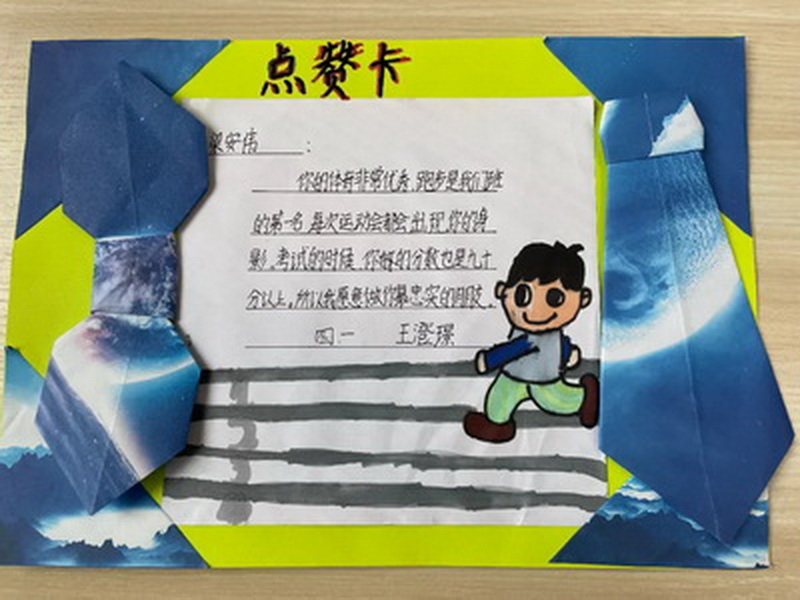 点赞卡
梁安伟:
你的体育非常优秀,跑步是我们班
的第一名,每次运动会都会出现你的身
影,考试的时候,你的分数也是九十
分以上,所以我愿意做你最忠实的朋友。
四一 王澄璟